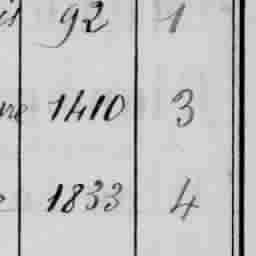 92 1
1410 3
1833 4